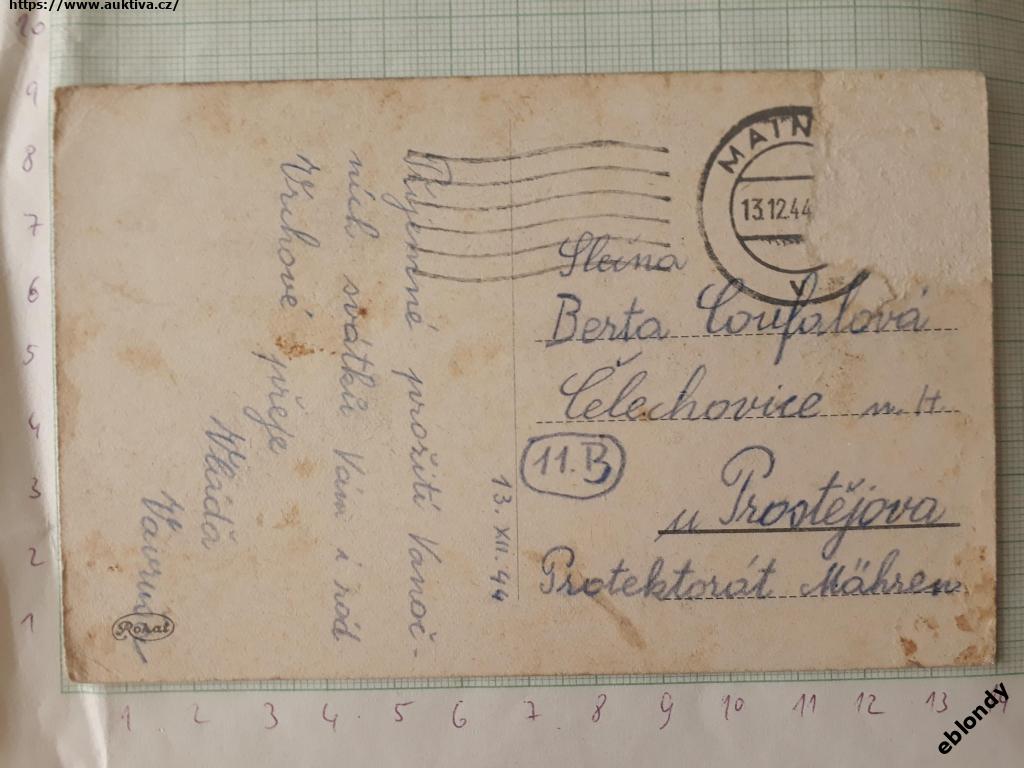 https://www.auktiva.cz/
MAIN
13.12.44
Slečna
Berta Coufalová
Čelechovice n. H.
11.B
u Prostějova
Protektorát Mähren
13. XII. 44
Příjemné prožití Vanoč-
ních svátků Vám i
přeje
Vláďa
Rokat
10
9
8
7
6
5
4
3
2
1
1 2 3 4 5 6 7 8 9 10 11 12 13
eblondy